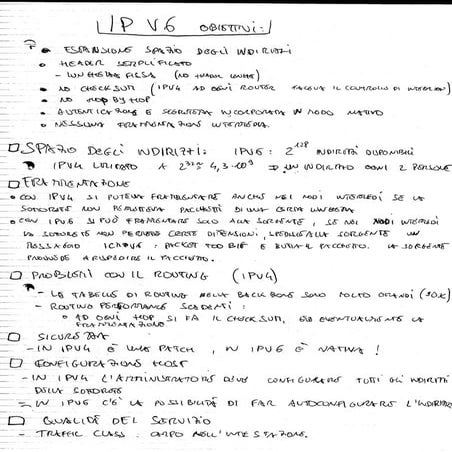 IP V.6 OBIETTIVI:
? • ESPANSIONE SPAZIO DEGLI INDIRIZZI
• HEADER SEMPLIFICATO
- LUNGHEZZA FISSA (NO HEADER LENGTH)
• NO CHECKSUM (IPV4 AD OGNI ROUTER FACEVA IL CONTROLLO DI
• NO HOP BY HOP
• AUTENTICAZIONE E SEGRETEZZA INCORPORATA IN MODO NATIVO
• NESSUNA FRAMMENTAZIONE INTERMEDIA.
□ SPAZIO DEGLI INDIRIZZI: IPV6: 2^128 INDIRIZZI DISPONIBILI
IPV4 LIMITATO A 2^32 ≈ 4,3·10^9 ⇒ UN INDIRIZZO OGNI 2 PERSONE
□ FRAMMENTAZIONE
• CON IPV4 SI POTEVA FRAMMENTARE ANCHE NEI NODI INTERMEDI SE LA
SOTTORETE NON PERMETTEVA PACCHETTI DI UNA CERTA LUNGHEZZA
• CON IPV6 SI PUÒ FRAMMENTARE SOLO ALLA SORGENTE, SE NEI NODI INTERMEDI
LA SOTTORETE NON PERMETTE CERTE DIMENSIONI, SPEDISCE ALLA SORGENTE UN
MESSAGGIO ICMPV6: PACKET TOO BIG E BUTTA IL PACCHETTO. LA SORGENTE
PROVVEDE A RISPEDIRE IL PACCHETTO.
□ PROBLEMI CON IL ROUTING (IPV4)
- LE TABELLE DI ROUTING NELLA BACKBONE SONO MOLTO GRANDI
- ROUTING PERFORMANCE SCADENTI:
• AD OGNI HOP SI FA IL CHECKSUM, ED EVENTUALMENTE LA
FRAMMENTAZIONE
□ SICUREZZA
- IN IPV4 È UNA PATCH, IN IPV6 È NATIVA!
□ CONFIGURAZIONE HOST
- IN IPV4 L'AMMINISTRATORE DEVE CONFIGURARE TUTTI GLI INDIRIZZI
DELLA SOTTORETE
- IN IPV6 C'È LA POSSIBILITÀ DI FAR AUTOCONFIGURARE L'INDIRIZZO
□ QUALITÀ DEL SERVIZIO
- TRAFFIC CLASS: CAMPO NELL'INTESTAZIONE.